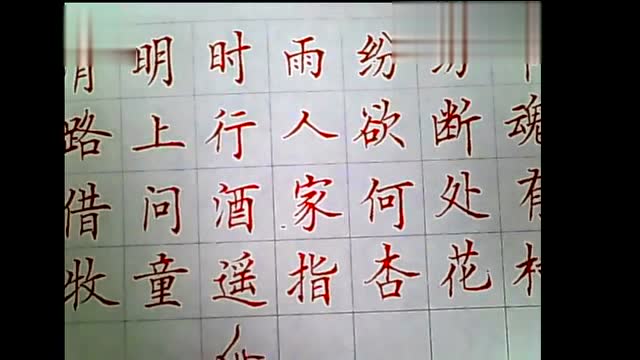 清明时雨纷纷
路上行人欲断魂
借问酒家何处有
牧童遥指杏花村